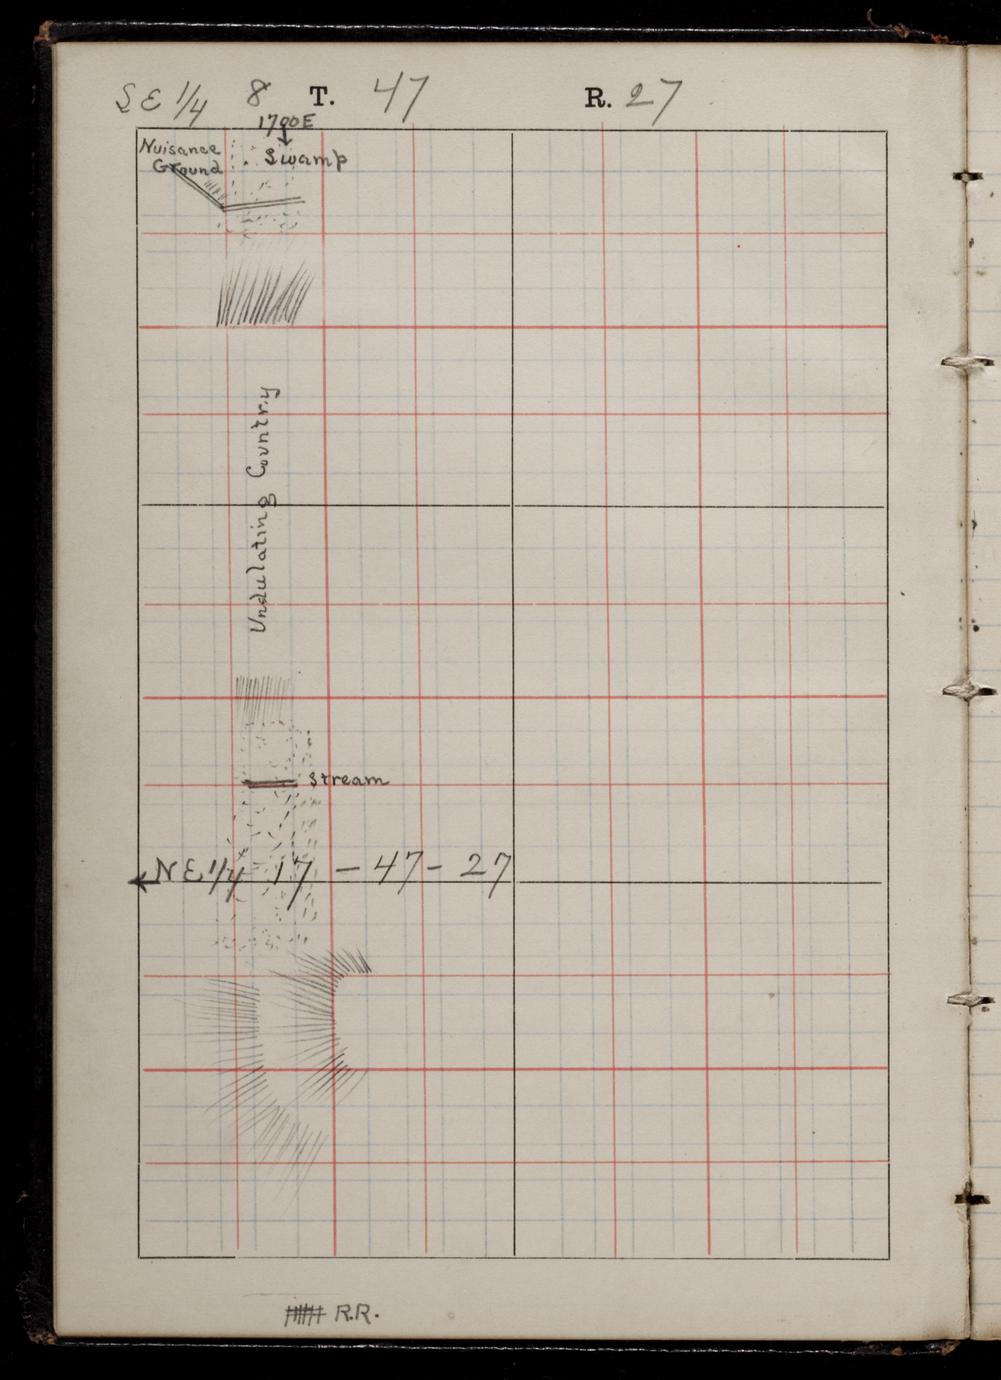 SE 1/4 8 T. 47 R. 27
1700E
Nuisance
Ground
Swamp
Undulating Country
Stream
NE 1/4 17 - 47 - 27
R.R.